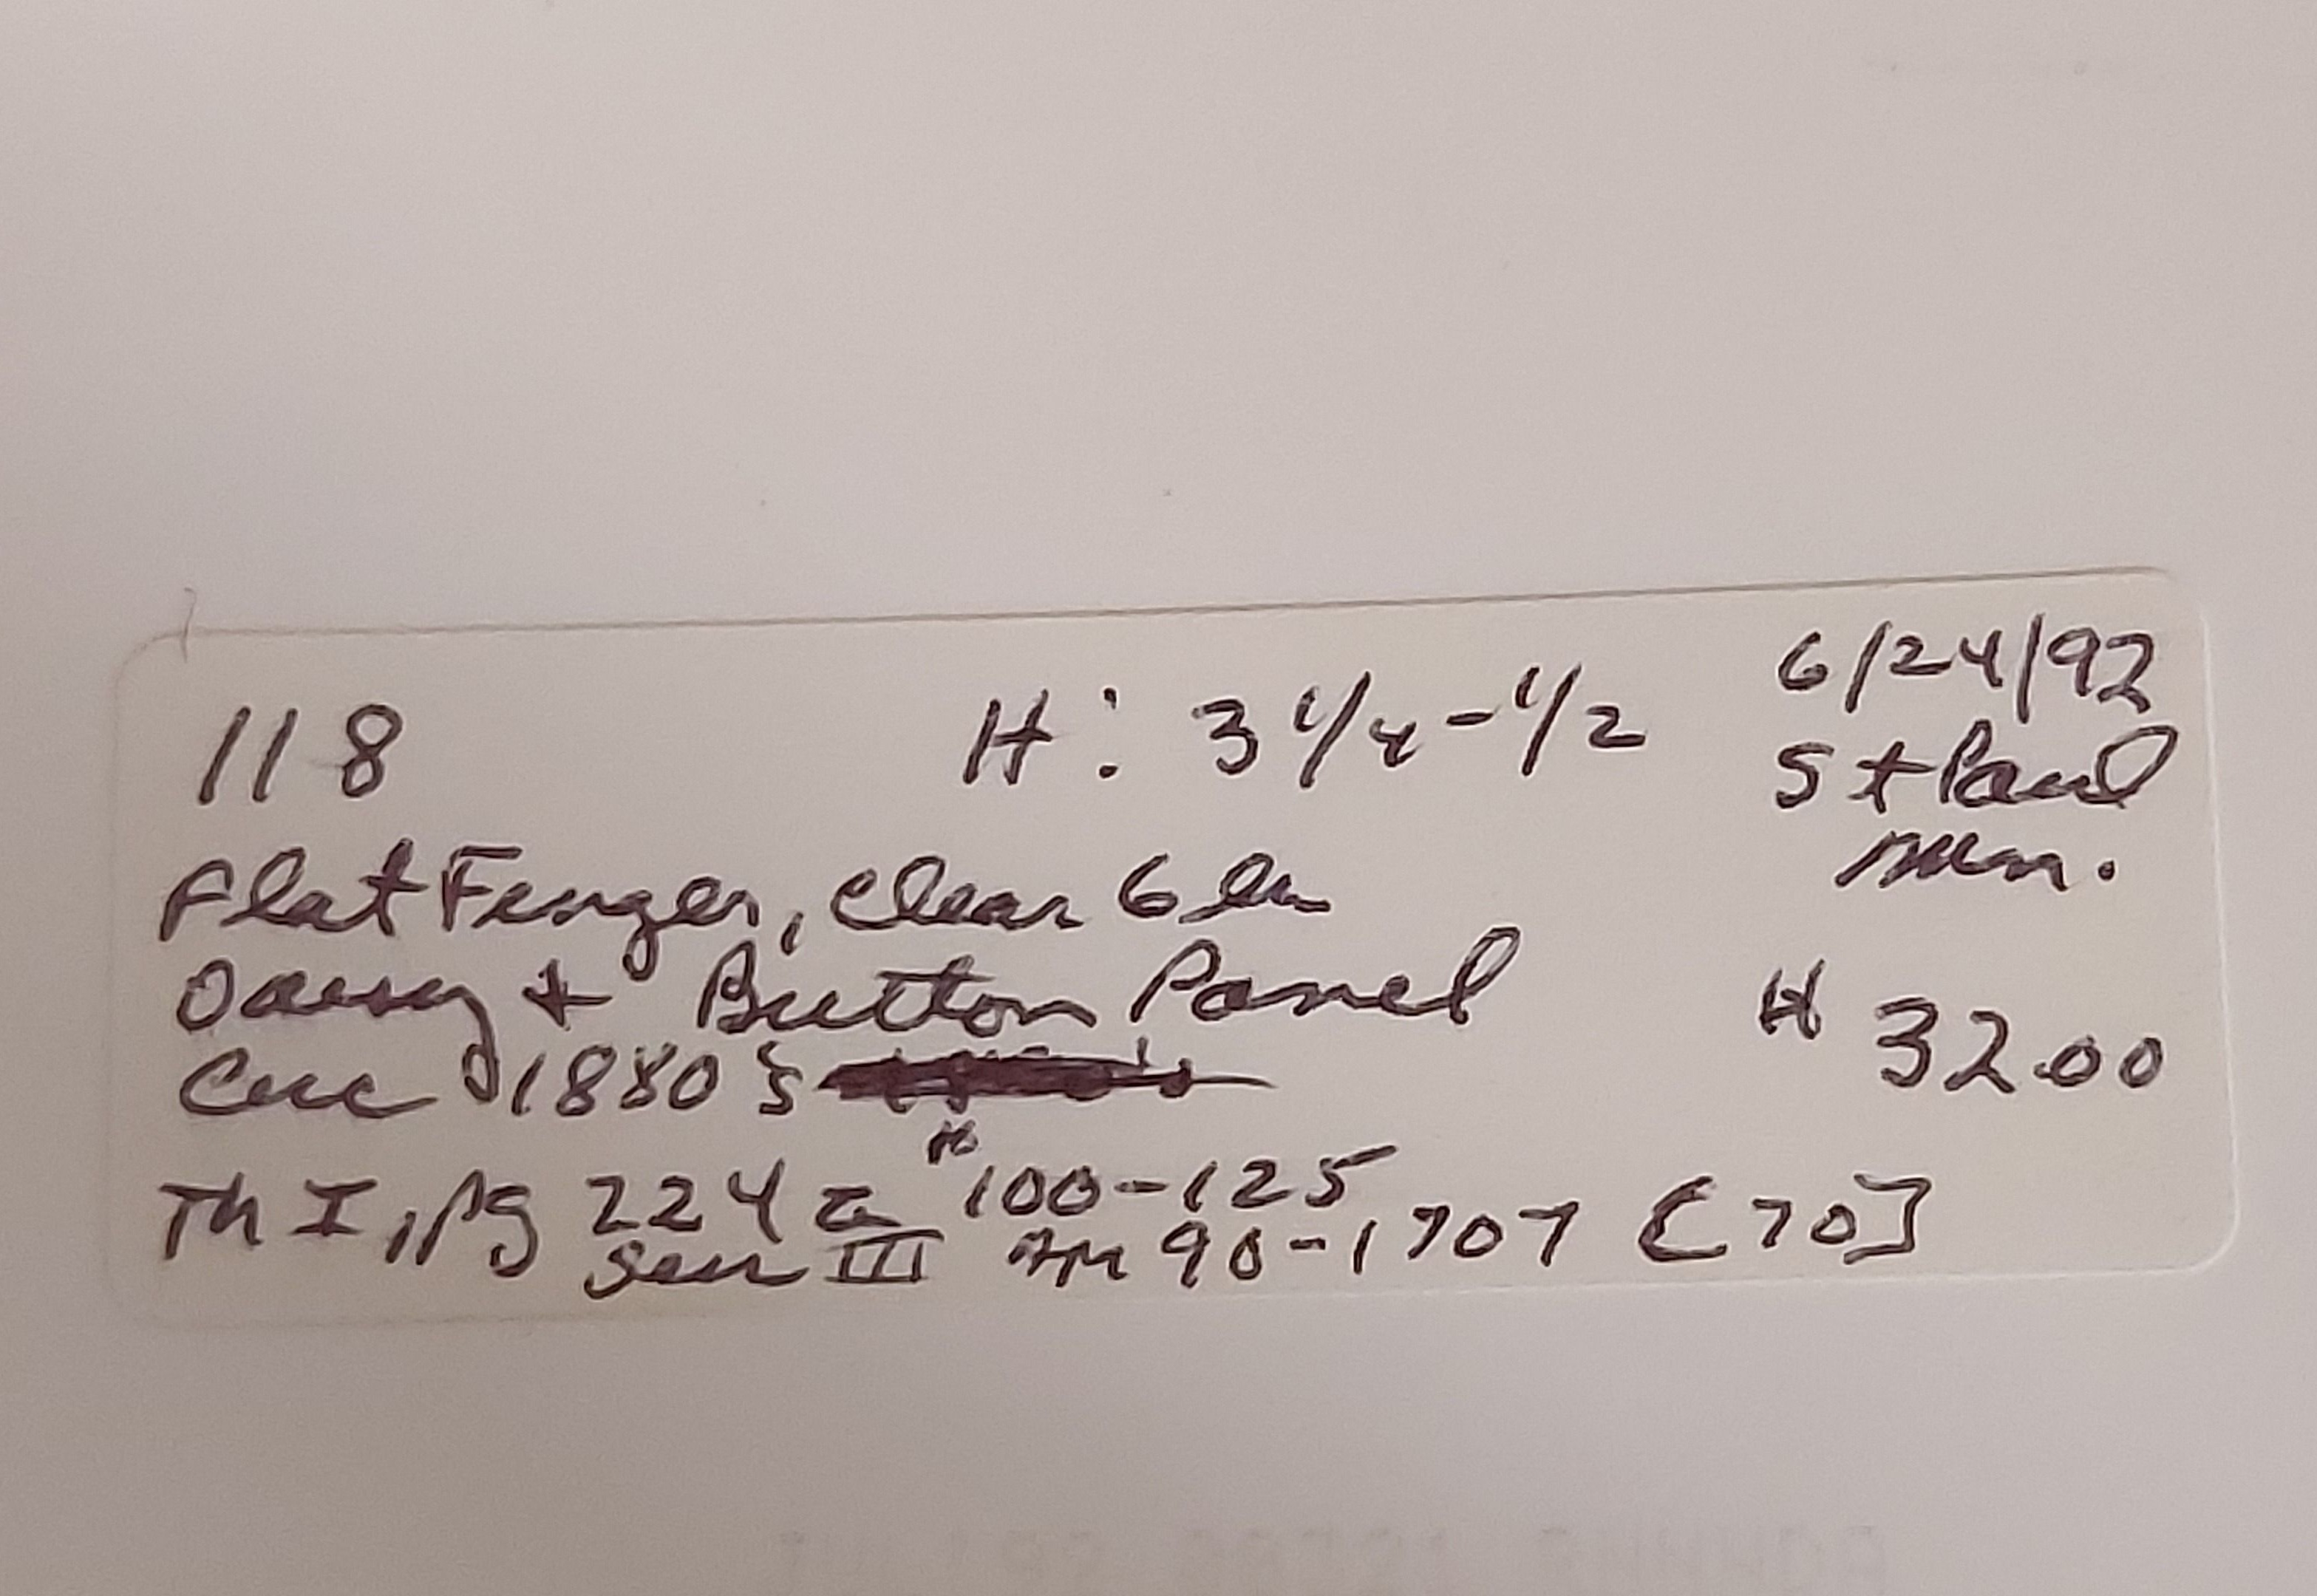 118 H: 3 1/4-1/2 6/24/92
St Paul
Minn.
Flat Finger, Clear
Daisy & Button Panel
$ 32.00
Circ 1880's
Th I, pg 224 $100-125
Ser III 90-1707 [70]